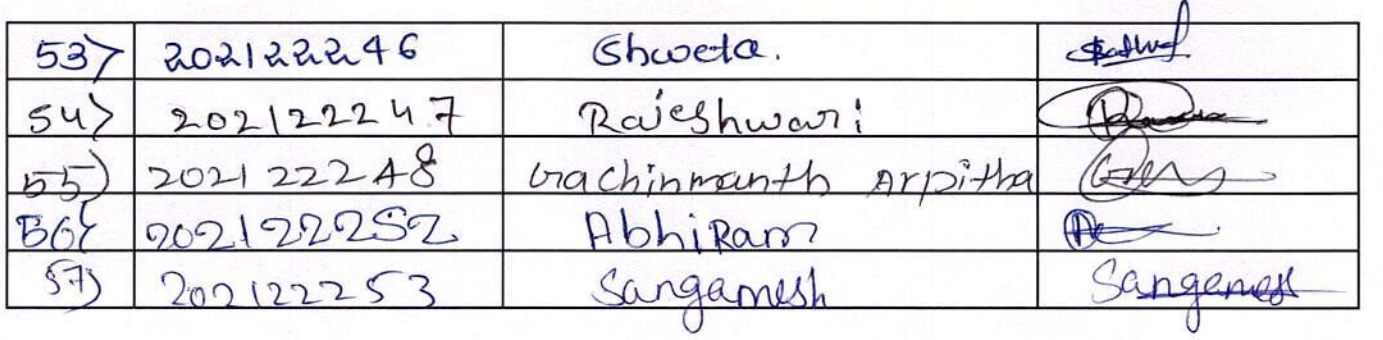 53) 202122246 Shweta.
54) 202122247 Rajeshwari
55) 202122248 Gachinmanth Arpitha
56) 202122252 AbhiRam
57) 202122253 Sangamesh Sangamesh